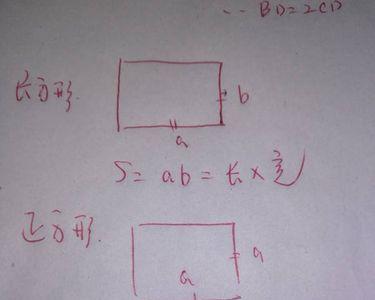 ∵ BD=2CD
长方形.
b
a
S= ab = 长×宽
正方形.
a
a